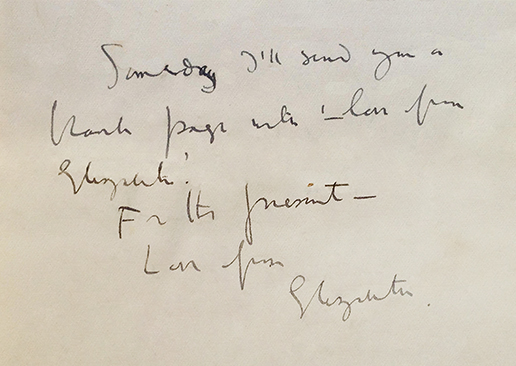 Someday I'll send you a
blank page with '– love from
Elizabeth.'
For the present –
Love from
Elizabeth.